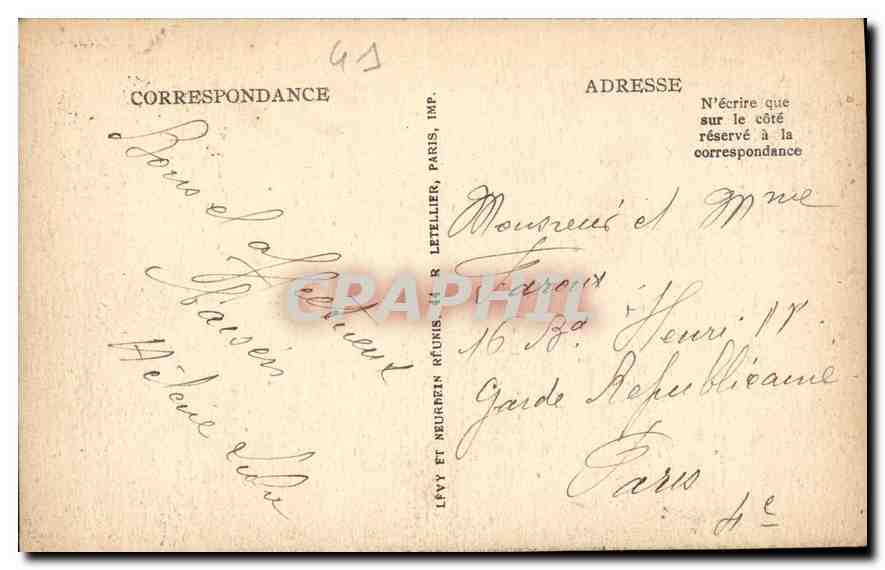 49
CORRESPONDANCE
Bons et affectueux
Baisers
Hélène
LÉVY ET NEURDEIN RÉUNIS, 44 R LETELLIER, PARIS, IMP.
ADRESSE
N'écrire que
sur le côté
réservé à la
correspondance
Monsieur et Mme
Faroux
16 Bd. Henri IV.
Garde Republicaine
Paris
4e
CPAPHIL